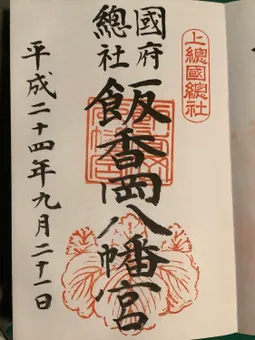 上總國總社
國府
總社
飯香岡八幡宮
平成二十四年九月二十一日